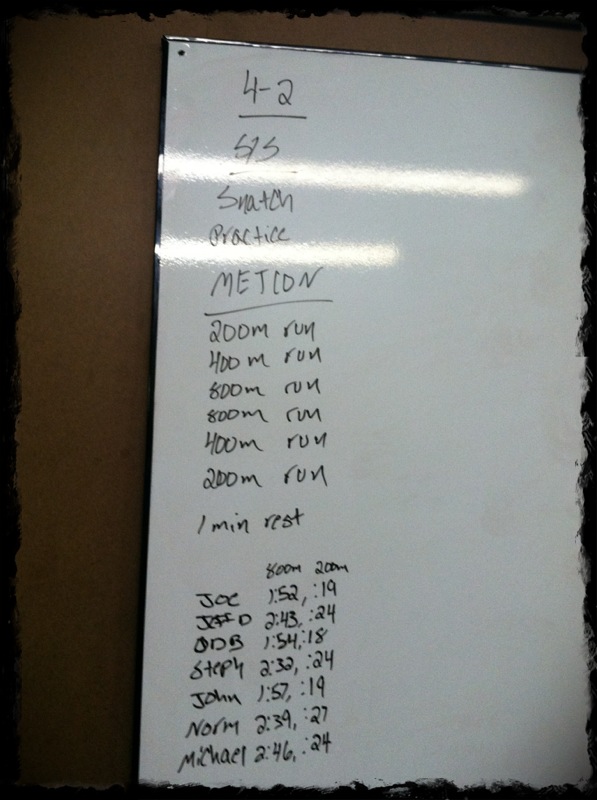 4-2
S/S
Snatch
Practice
METCON
200m run
400m run
800m run
800m run
400m run
200m run
1 min rest
800m 200m
Joe 1:52, :19
Jeff D 2:43, :24
ODB 1:54, :18
Steph 2:32, :24
John 1:57, :19
Norm 2:39, :27
Michael 2:46, :24